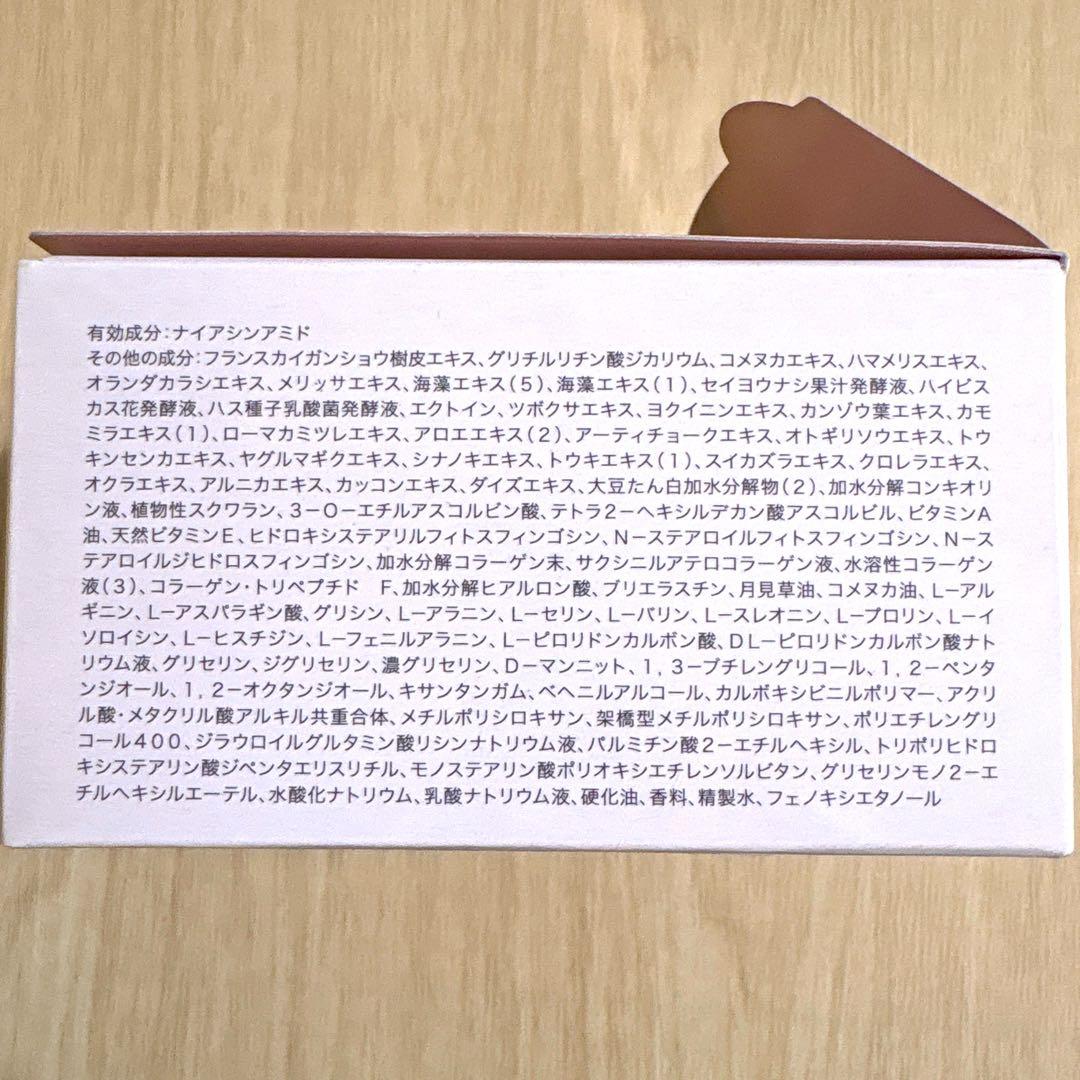 有効成分:ナイアシンアミド
その他の成分:フランスカイガンショウ樹皮エキス、グリチルリチン酸ジカリウム、コメヌカエキス、ハマメリスエキス、
オランダカラシエキス、メリッサエキス、海藻エキス(5)、海藻エキス(1)、セイヨウナシ果汁発酵液、ハイビス
カス花発酵液、ハス種子乳酸菌発酵液、エクトイン、ツボクサエキス、ヨクイニンエキス、カンゾウ葉エキス、カモ
ミラエキス(1)、ローマカミツレエキス、アロエエキス(2)、アーティチョークエキス、オトギリソウエキス、トウ
キンセンカエキス、ヤグルマギクエキス、シナノキエキス、トウキエキス(1)、スイカズラエキス、クロレラエキス、
オクラエキス、アルニカエキス、カッコンエキス、ダイズエキス、大豆たん白加水分解物(2)、加水分解コンキオリ
ン液、植物性スクワラン、3-O-エチルアスコルビン酸、テトラ2-ヘキシルデカン酸アスコルビル、ビタミンA
油、天然ビタミンE、ヒドロキシステアリルフィトスフィンゴシン、N-ステアロイルフィトスフィンゴシン、N-ス
テアロイルジヒドロスフィンゴシン、加水分解コラーゲン末、サクシニルアテロコラーゲン液、水溶性コラーゲン
液(3)、コラーゲン・トリペプチド F、加水分解ヒアルロン酸、プリエラスチン、月見草油、コメヌカ油、L-アル
ギニン、L-アスパラギン酸、グリシン、L-アラニン、L-セリン、L-バリン、L-スレオニン、L-プロリン、L-イ
ソロイシン、L-ヒスチジン、L-フェニルアラニン、L-ピロリドンカルボン酸、DL-ピロリドンカルボン酸ナト
リウム液、グリセリン、ジグリセリン、濃グリセリン、D-マンニット、1,3-ブチレングリコール、1,2-ペンタ
ンジオール、1,2-オクタンジオール、キサンタンガム、ベヘニルアルコール、カルボキシビニルポリマー、アクリ
ル酸・メタクリル酸アルキル共重合体、メチルポリシロキサン、架橋型メチルポリシロキサン、ポリエチレングリ
コール400、ジラウロイルグルタミン酸リシンナトリウム液、パルミチン酸2-エチルヘキシル、トリポリヒドロ
キシステアリン酸ジペンタエリスリチル、モノステアリン酸ポリオキシエチレンソルビタン、グリセリンモノ2-エ
チルヘキシルエーテル、水酸化ナトリウム、乳酸ナトリウム液、硬化油、香料、精製水、フェノキシエタノール